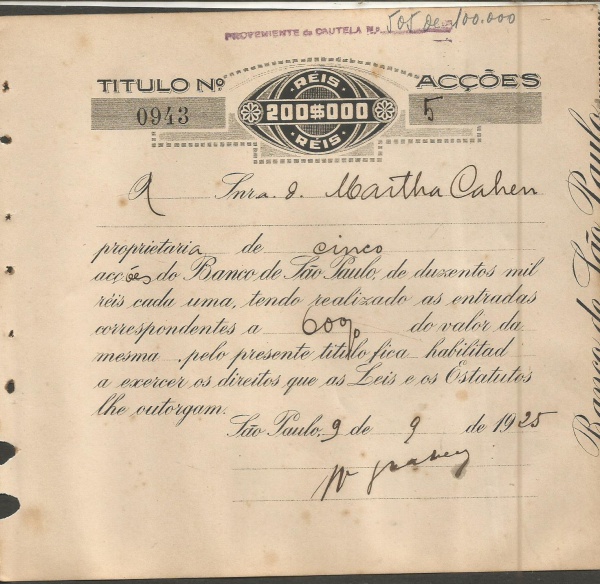 PROVENIENTE da CAUTELA N.o 505 de 100.000
TITULO Nº
RÉIS
ACÇÕES
0943
200$000
5
RÉIS
A Snra. d. Martha Cahen
proprietaria de cinco
acções do Banco de São Paulo, de duzentos mil
réis cada uma, tendo realizado as entradas
correspondentes a 60% do valor da
mesma , pelo presente titulo fica habilitad
a exercer os direitos que as Leis e os Estatutos
lhe outorgam.
São Paulo, 9 de 9 de 1925
Banco de São Paulo